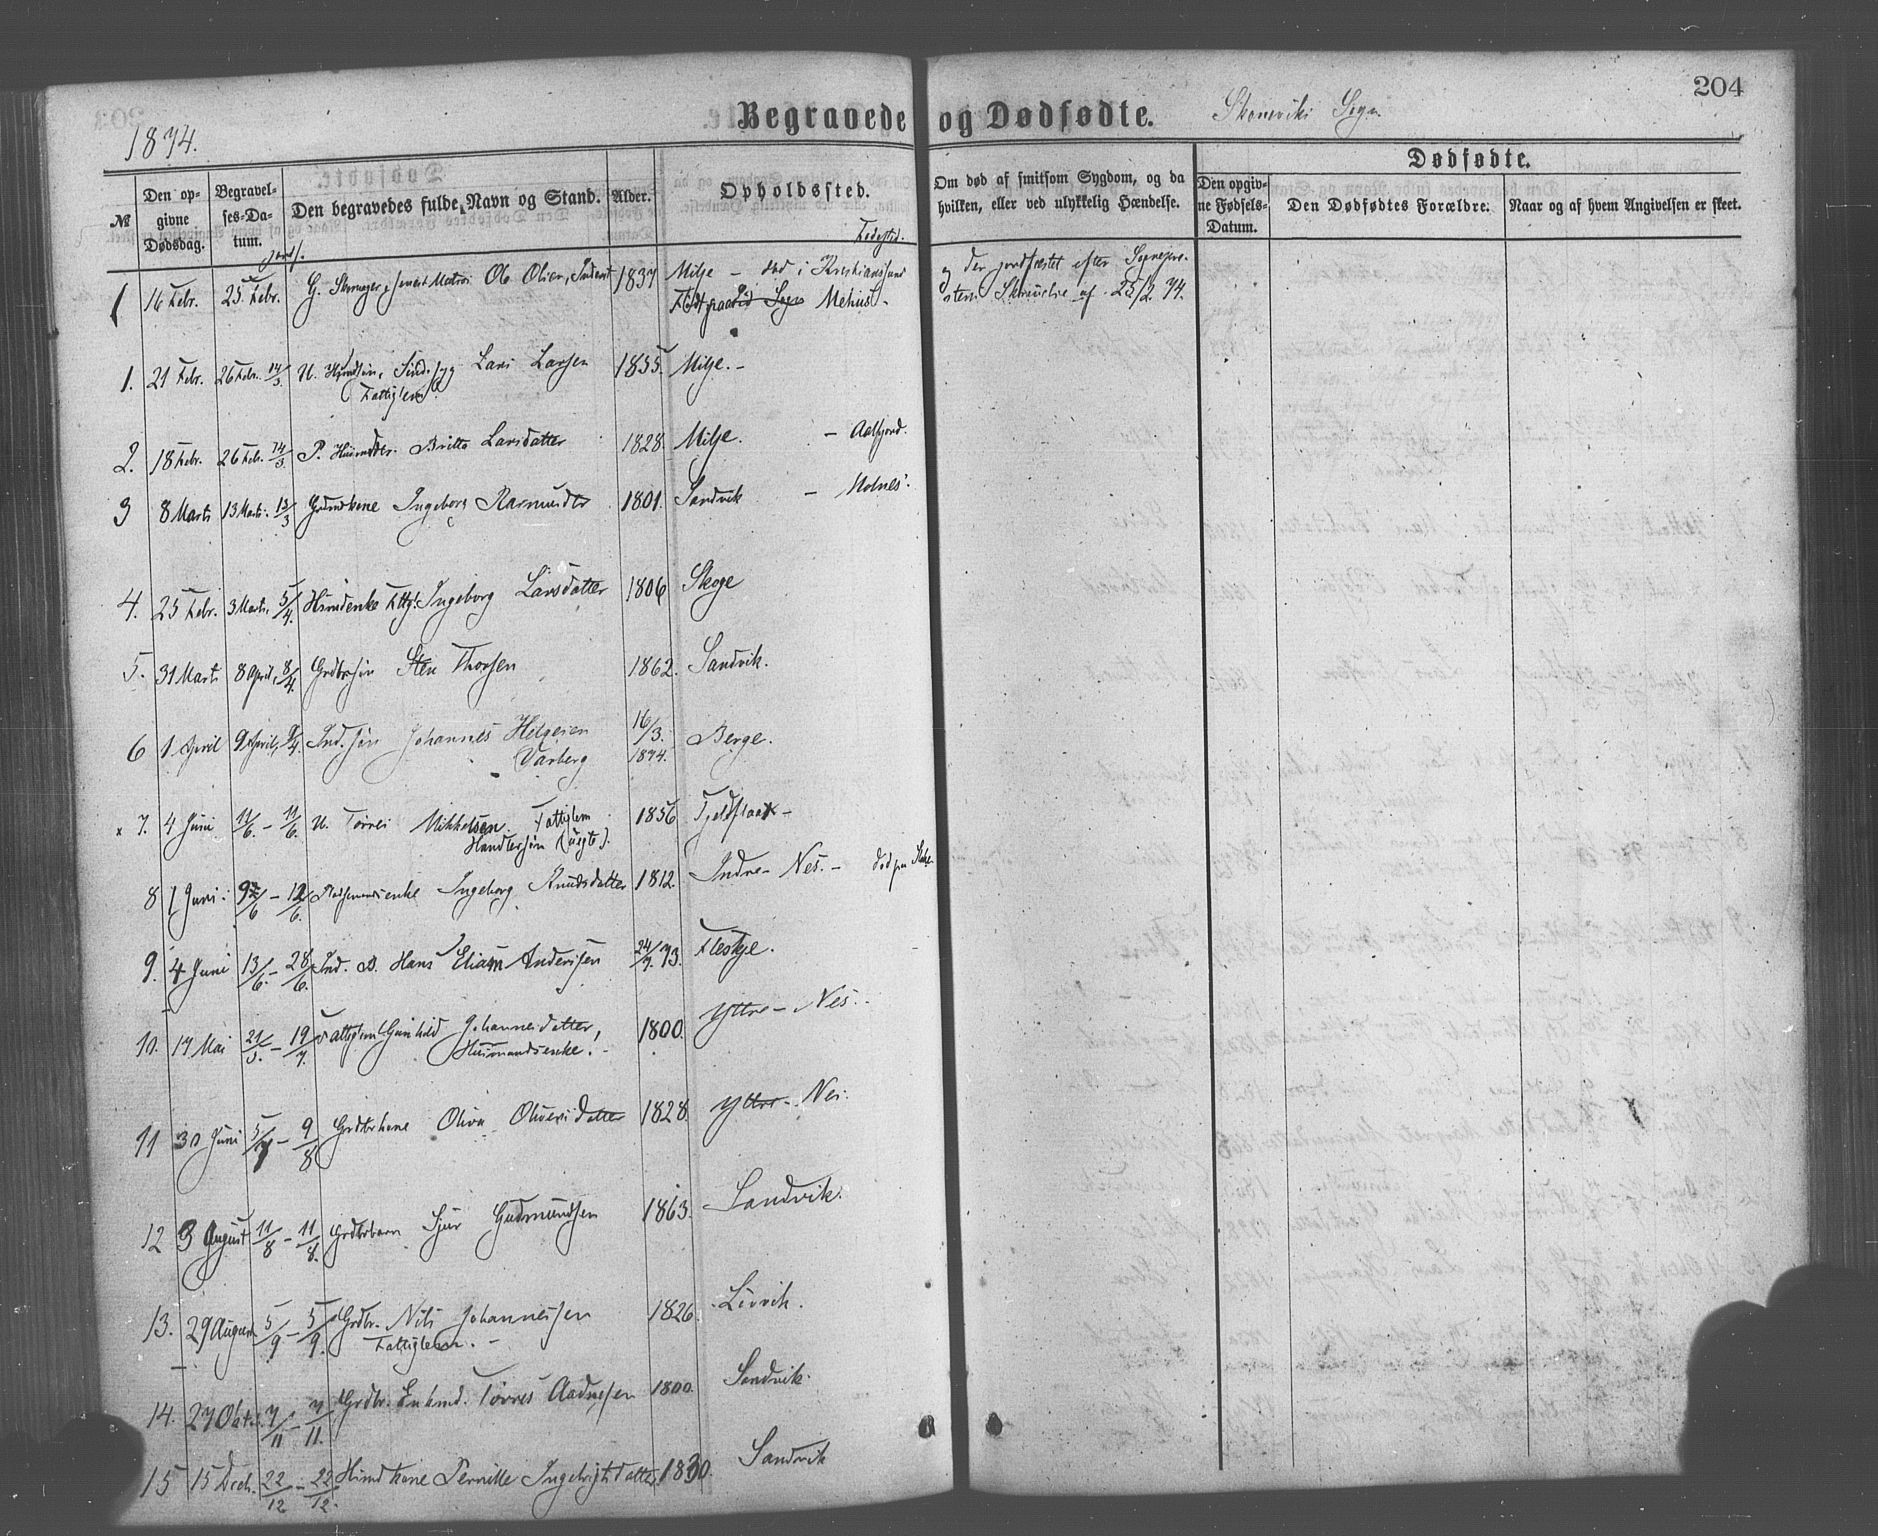 204
Begravede og Dødfødte. Skoneviks Sogn.
1874.
Dødfødte.
№
Den opgivne Dødsdag.
Begravelses-Datum.
Den begravedes fulde Navn og Stand.
Alder.
Opholdssted.
Om død af smitsom Sygdom, og da hvilken, eller ved ulykkelig Hændelse.
Den opgivne Fødsels-Datum.
Den Dødfødtes Forældre.
Naar og af hvem Angivelsen er skeet.
Fødested.
1 16 Febr. 25 Febr. G. Ole Olsen, 1837 Milje – død i Kristianssund og der jordfæstet efter
Sogn 25/2 74.
1. 21 Febr. 26 Febr. 14/3 U. Lars Larsen 1855. Milje. –
Fattiglem
2. 18 Febr. 26 Febr. 14/3 P. Britta Larsdatter 1828. Milje. – Aalfjord.
3 8 Marts 13 Marts. 13/3 Ingeborg Rasmusdtr 1801. Sandvik – Molnes.
4. 25 Febr. 3 Marts, 5/4. Ingeborg Larsdatter 1806 Skoge
5. 31 Marts 8 April, 8/4. Grdbrsøn Sten Thorsen 1862. Sandvik.
6 1 April 9 April, 9/4. Ind. søn Johannes Helgesen 16/3. 1874. Berge.
Varberg
x 7. 4 Juni 11/6. – 11/6. U. Torres Mikkelsen Fattiglem 1856 Fjeldstad –
(uegte).
8 1 Juni 12/6. enke Ingeborg Knudsdatter 1812. Indre – Nes. – død paa
9. 4 Juni 13/6. – 28/6. Ind. B. Hans Elias Andersen 24/7. 73. Fleskje.
10. 17 Mai 21/5. – 19/7. Fattiglem Gunhild Johannesdatter, 1800. Yttre – Nes.
Husmandsenke! –
11 30 Juni 5/7 – 9/8 Grdbrkone Oliva Oliversdatter 1828. Yttre – Nes.
12 3 August 11/8 – 11/8. Grdbrbarn Sjur Gudmundsen 1863. Sandvik.
13. 29 August 5/9 – 5/9. Grdbr. Nils Johannessen 1826 Lervik.
Fattiglem. –
14. 27 Oktr. 7/11 – 7/11. Grdbr. Enkmd. Torres Aadnesen 1800. Sandvik.
15 15 Decb. 22/12 – 22/12. Hmdkone Pernille Ingebrigtsdatter 1830. Sandvik